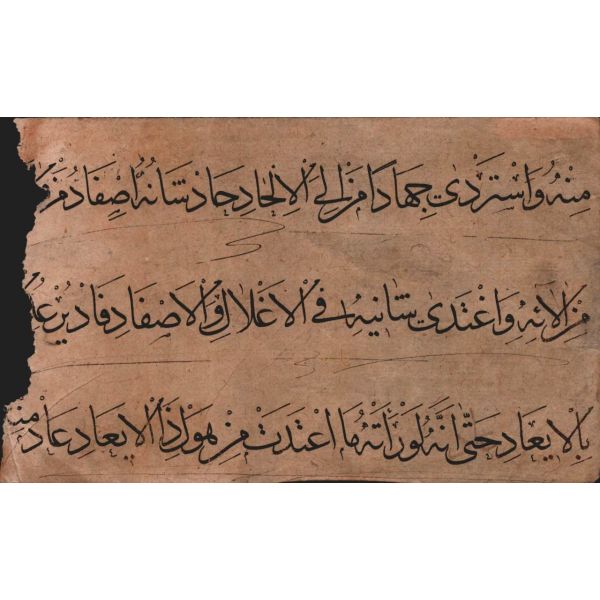 مِنْهُ وَاسْتَرْدٰى جِهَادًا مَنْ اِلَى الْاِلْحَادِ حَادَ شَانُهُ اَصْفَادُ مَنْ
مِنْ اٰلَائِهِ وَاغْتَدٰى شَانِيهِ فِى الْاَغْلَالِ وَالْاَصْفَادِ فَادْيِرْ
بِالْاِيعَادِ حَتّٰى اَنَّهُ لَوْ رَاَتْهُ مَا اغْتَدَتْ مِنْ هَوْلِ ذَا الْاِيعَادِ عَادُ مِنْهُ